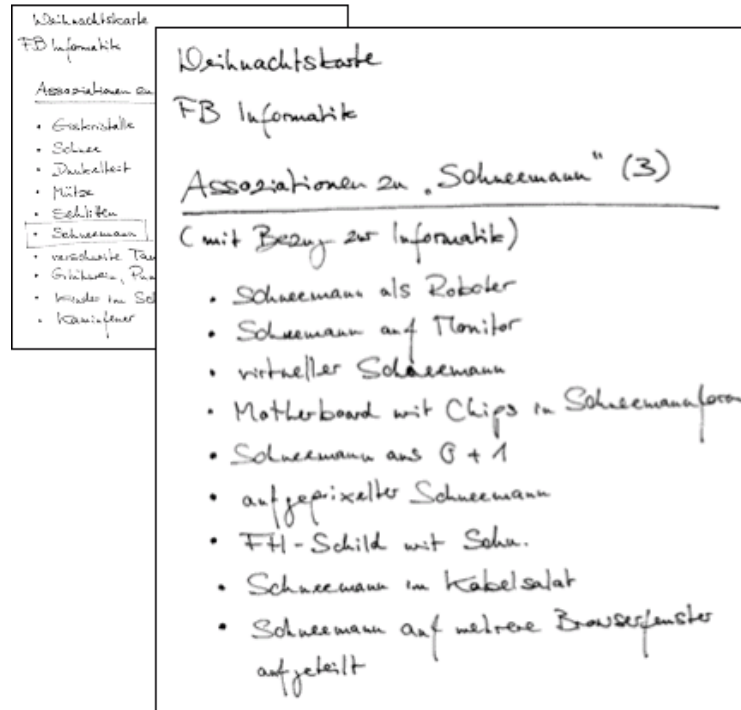 Weihnachtskarte
FB Informatik
Assoziationen zu
• Eiskristalle
• Schnee
• Dunkelheit
• Mütze
• Schlitten
• Schneemann
• verschneite Tan
• Glühwein, Pun
• Kinder im Sch
• Kaminfeuer
Weihnachtskarte
FB Informatik
Assoziationen zu „Schneemann“ (3)
(mit Bezug zur Informatik)
• Schneemann als Roboter
• Schneemann auf Monitor
• virtueller Schneemann
• Motherboard mit Chips in Schneemannform
• Schneemann aus 0 + 1
• aufgepixelter Schneemann
• FH-Schild mit Schn.
• Schneemann im Kabelsalat
• Schneemann auf mehrere Browserfenster
aufgeteilt